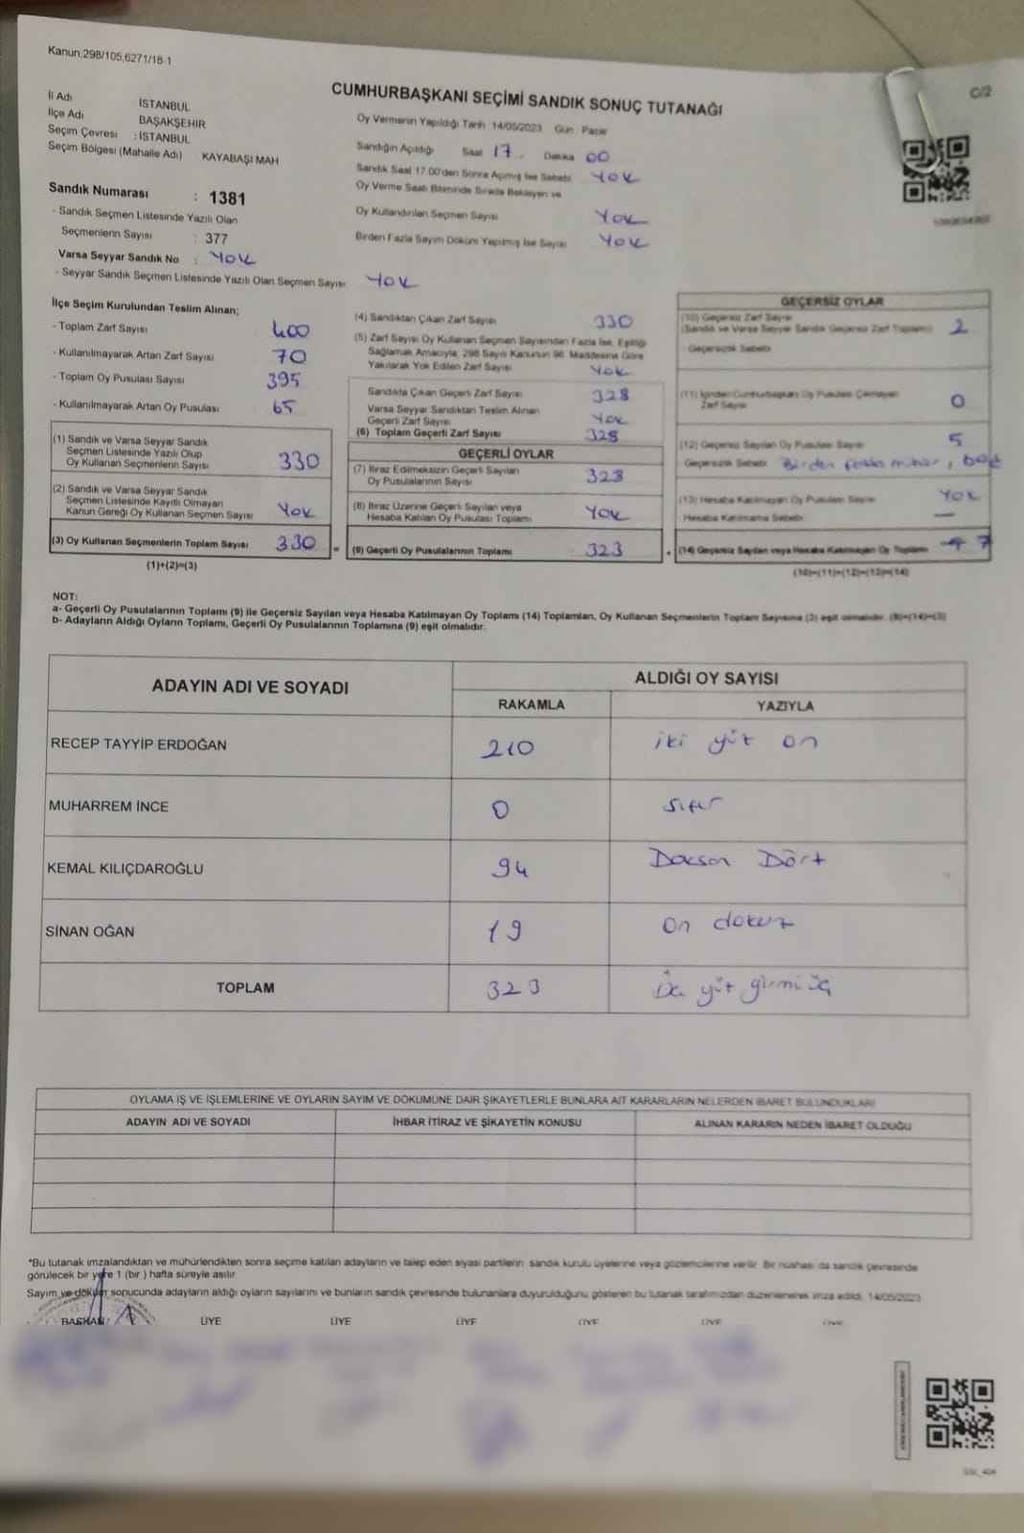 Kanun.298/105,6271/18-1
C/2
CUMHURBAŞKANI SEÇİMİ SANDIK SONUÇ TUTANAĞI
İl Adı İSTANBUL
İlçe Adı BAŞAKŞEHİR
Seçim Çevresi : İSTANBUL
Seçim Bölgesi (Mahalle Adı) KAYABAŞI MAH
Sandık Numarası : 1381
- Sandık Seçmen Listesinde Yazılı Olan
Seçmenlerin Sayısı : 377
Varsa Seyyar Sandık No : YOK
- Seyyar Sandık Seçmen Listesinde Yazılı Olan Seçmen Sayısı YOK
Oy Vermenin Yapıldığı Tarih 14/05/2023 Gün Pazar
Sandığın Açıldığı Saat 17 Dakika 00
Sandık Saat 17.00'den Sonra Açılmış İse Sebebi YOK
Oy Verme Saati Bitiminde Sırada Bekleyen ve
Oy Kullandırılan Seçmen Sayısı YOK
Birden Fazla Sayım Döküm Yapılmış İse Sayısı YOK
İlçe Seçim Kurulundan Teslim Alınan;
- Toplam Zarf Sayısı 400
- Kullanılmayarak Artan Zarf Sayısı 70
- Toplam Oy Pusulası Sayısı 395
- Kullanılmayarak Artan Oy Pusulası 65
(1) Sandık ve Varsa Seyyar Sandık
Seçmen Listesinde Yazılı Olup
Oy Kullanan Seçmenlerin Sayısı 330
(2) Sandık ve Varsa Seyyar Sandık
Seçmen Listesinde Kayıtlı Olmayan
Kanun Gereği Oy Kullanan Seçmen Sayısı YOK
(3) Oy Kullanan Seçmenlerin Toplam Sayısı 330 =
(1)+(2)=(3)
(4) Sandıktan Çıkan Zarf Sayısı 330
(5) Zarf Sayısı Oy Kullanan Seçmen Sayısından Fazla İse, Eşitliği
Sağlamak Amacıyla, 298 Sayılı Kanunun 98. Maddesine Göre
Yakılarak Yok Edilen Zarf Sayısı YOK
Sandıkta Çıkan Geçerli Zarf Sayısı 328
Varsa Seyyar Sandıktan Teslim Alınan
Geçerli Zarf Sayısı YOK
(6) Toplam Geçerli Zarf Sayısı 328
GEÇERLİ OYLAR
(7) İtiraz Edilmeksizin Geçerli Sayılan
Oy Pusulalarının Sayısı 323
(8) İtiraz Üzerine Geçerli Sayılan veya
Hesaba Katılan Oy Pusulası Toplamı YOK
(9) Geçerli Oy Pusulalarının Toplamı 323
GEÇERSİZ OYLAR
(10) Geçersiz Zarf Sayısı
(Sandık ve Varsa Seyyar Sandık Geçersiz Zarf Toplamı) 2
Geçersizlik Sebebi
(11) İçinden Cumhurbaşkanı Oy Pusulası Çıkmayan
Zarf Sayısı 0
(12) Geçersiz Sayılan Oy Pusulası Sayısı 5
Geçersizlik Sebebi Birden fazla mühür,
(13) Hesaba Katılmayan Oy Pusulası Sayısı YOK
Hesaba Katılmama Sebebi —
(14) Geçersiz Sayılan veya Hesaba Katılmayan Oy Toplamı 7
(10)+(11)+(12)+(13)=(14)
NOT:
a- Geçerli Oy Pusulalarının Toplamı (9) ile Geçersiz Sayılan veya Hesaba Katılmayan Oy Toplamı (14) Toplamları, Oy Kullanan Seçmenlerin Toplam Sayısına (3) eşit olmalıdır. (9)+(14)=(3)
b- Adayların Aldığı Oyların Toplamı, Geçerli Oy Pusulalarının Toplamına (9) eşit olmalıdır.
ADAYIN ADI VE SOYADI ALDIĞI OY SAYISI
RAKAMLA YAZIYLA
RECEP TAYYİP ERDOĞAN 210 iki yüz on
MUHARREM İNCE 0 sıfır
KEMAL KILIÇDAROĞLU 94 Doksan Dört
SİNAN OĞAN 19 On dokuz
TOPLAM 323 yüz yirmi üç
OYLAMA İŞ VE İŞLEMLERİNE VE OYLARIN SAYIM VE DÖKÜMÜNE DAİR ŞİKAYETLERLE BUNLARA AİT KARARLARIN NELERDEN İBARET BULUNDUKLARI
ADAYIN ADI VE SOYADI İHBAR İTİRAZ VE ŞİKAYETİN KONUSU ALINAN KARARIN NEDEN İBARET OLDUĞU
*Bu tutanak imzalandıktan ve mühürlendikten sonra seçime katılan adayların ve talep eden siyasi partilerin sandık kurulu üyelerine veya gözlemcilerine verilir. Bir nüshası da sandık çevresinde
görülecek bir yere 1 (bir) hafta süreyle asılır
Sayım ve döküm sonucunda adayların aldığı oyların sayılarını ve bunların sandık çevresinde bulunanlara duyurulduğunu gösteren bu tutanak tarafımızdan düzenlenerek imza edildi. 14/05/2023
BAŞKAN ÜYE ÜYE ÜYE ÜYE ÜYE ÜYE